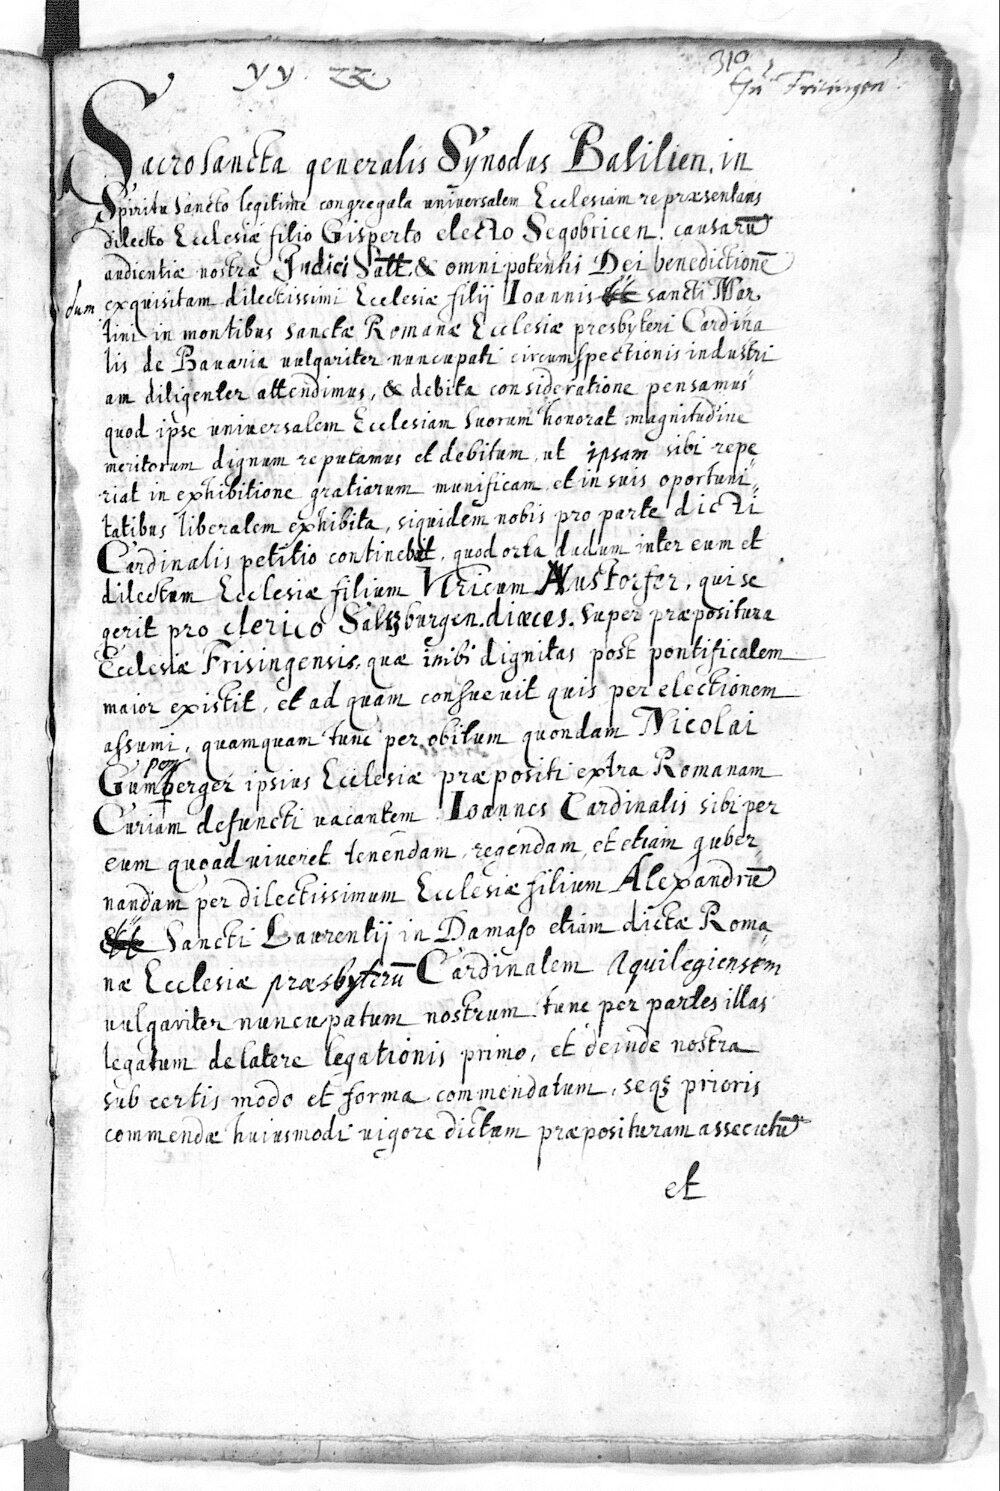 yy. zz.
310
Frisingen
Sacrosancta generalis Synodus Basilien. in
Spiritu sancto legitime congregata universalem Ecclesiam repræsentans
dilecto Ecclesiæ filio Gisperto electo Segobricen. causarū
audientiæ nostræ Iudici Satt. & omnipotentis Dei benedictionē
dum exquisitam dilectissimi Ecclesiæ filij Ioannis sancti Mar
tini in montibus sanctæ Romanæ Ecclesiæ presbyteri Cardina
lis de Bavaria vulgariter nuncupati circumspectionis industri
am diligenter attendimus, & debita consideratione pensamus
quod ipse universalem Ecclesiam suorum honorat magnitudine
meritorum dignum reputamus et debitum, ut ipsam sibi repe
riat in exhibitione gratiarum munificam et in suis oportuni,,
tatibus liberalem exhibita, siquidem nobis pro parte dicti
Cardinalis petitio continebat, quod orta dudum inter eum et
dilectum Ecclesiæ filium Vlricum Nustorfer, qui se
gerit pro clerico Saltzburgen. diœces. super præpositura
Ecclesiæ Frisingensis, quæ inibi dignitas post pontificalem
maior existit, et ad quam consuevit quis per electionem
assumi, quamquam tunc per obitum quondam Nicolai
per
Gumberger ipsius Ecclesiæ præpositi extra Romanam
Curiam defuncti vacantem Ioannes Cardinalis sibi per
eum quoad viveret tenendam, regendam, et etiam guber,,
nandam per dilectissimum Ecclesiæ filium Alexandrū
Sancti Laurentij in Damaso etiam dictæ Roma,,
næ Ecclesiæ præsbyterū Cardinalem Aquilegiensem
vulgariter nuncupatum nostrum tunc per partes illas
legatum de latere legationis primo, et deinde nostra
sub certis modo et forma commendatum, seqȝ prioris
commendæ huiusmodi vigore dictam præposituram assecutū
et